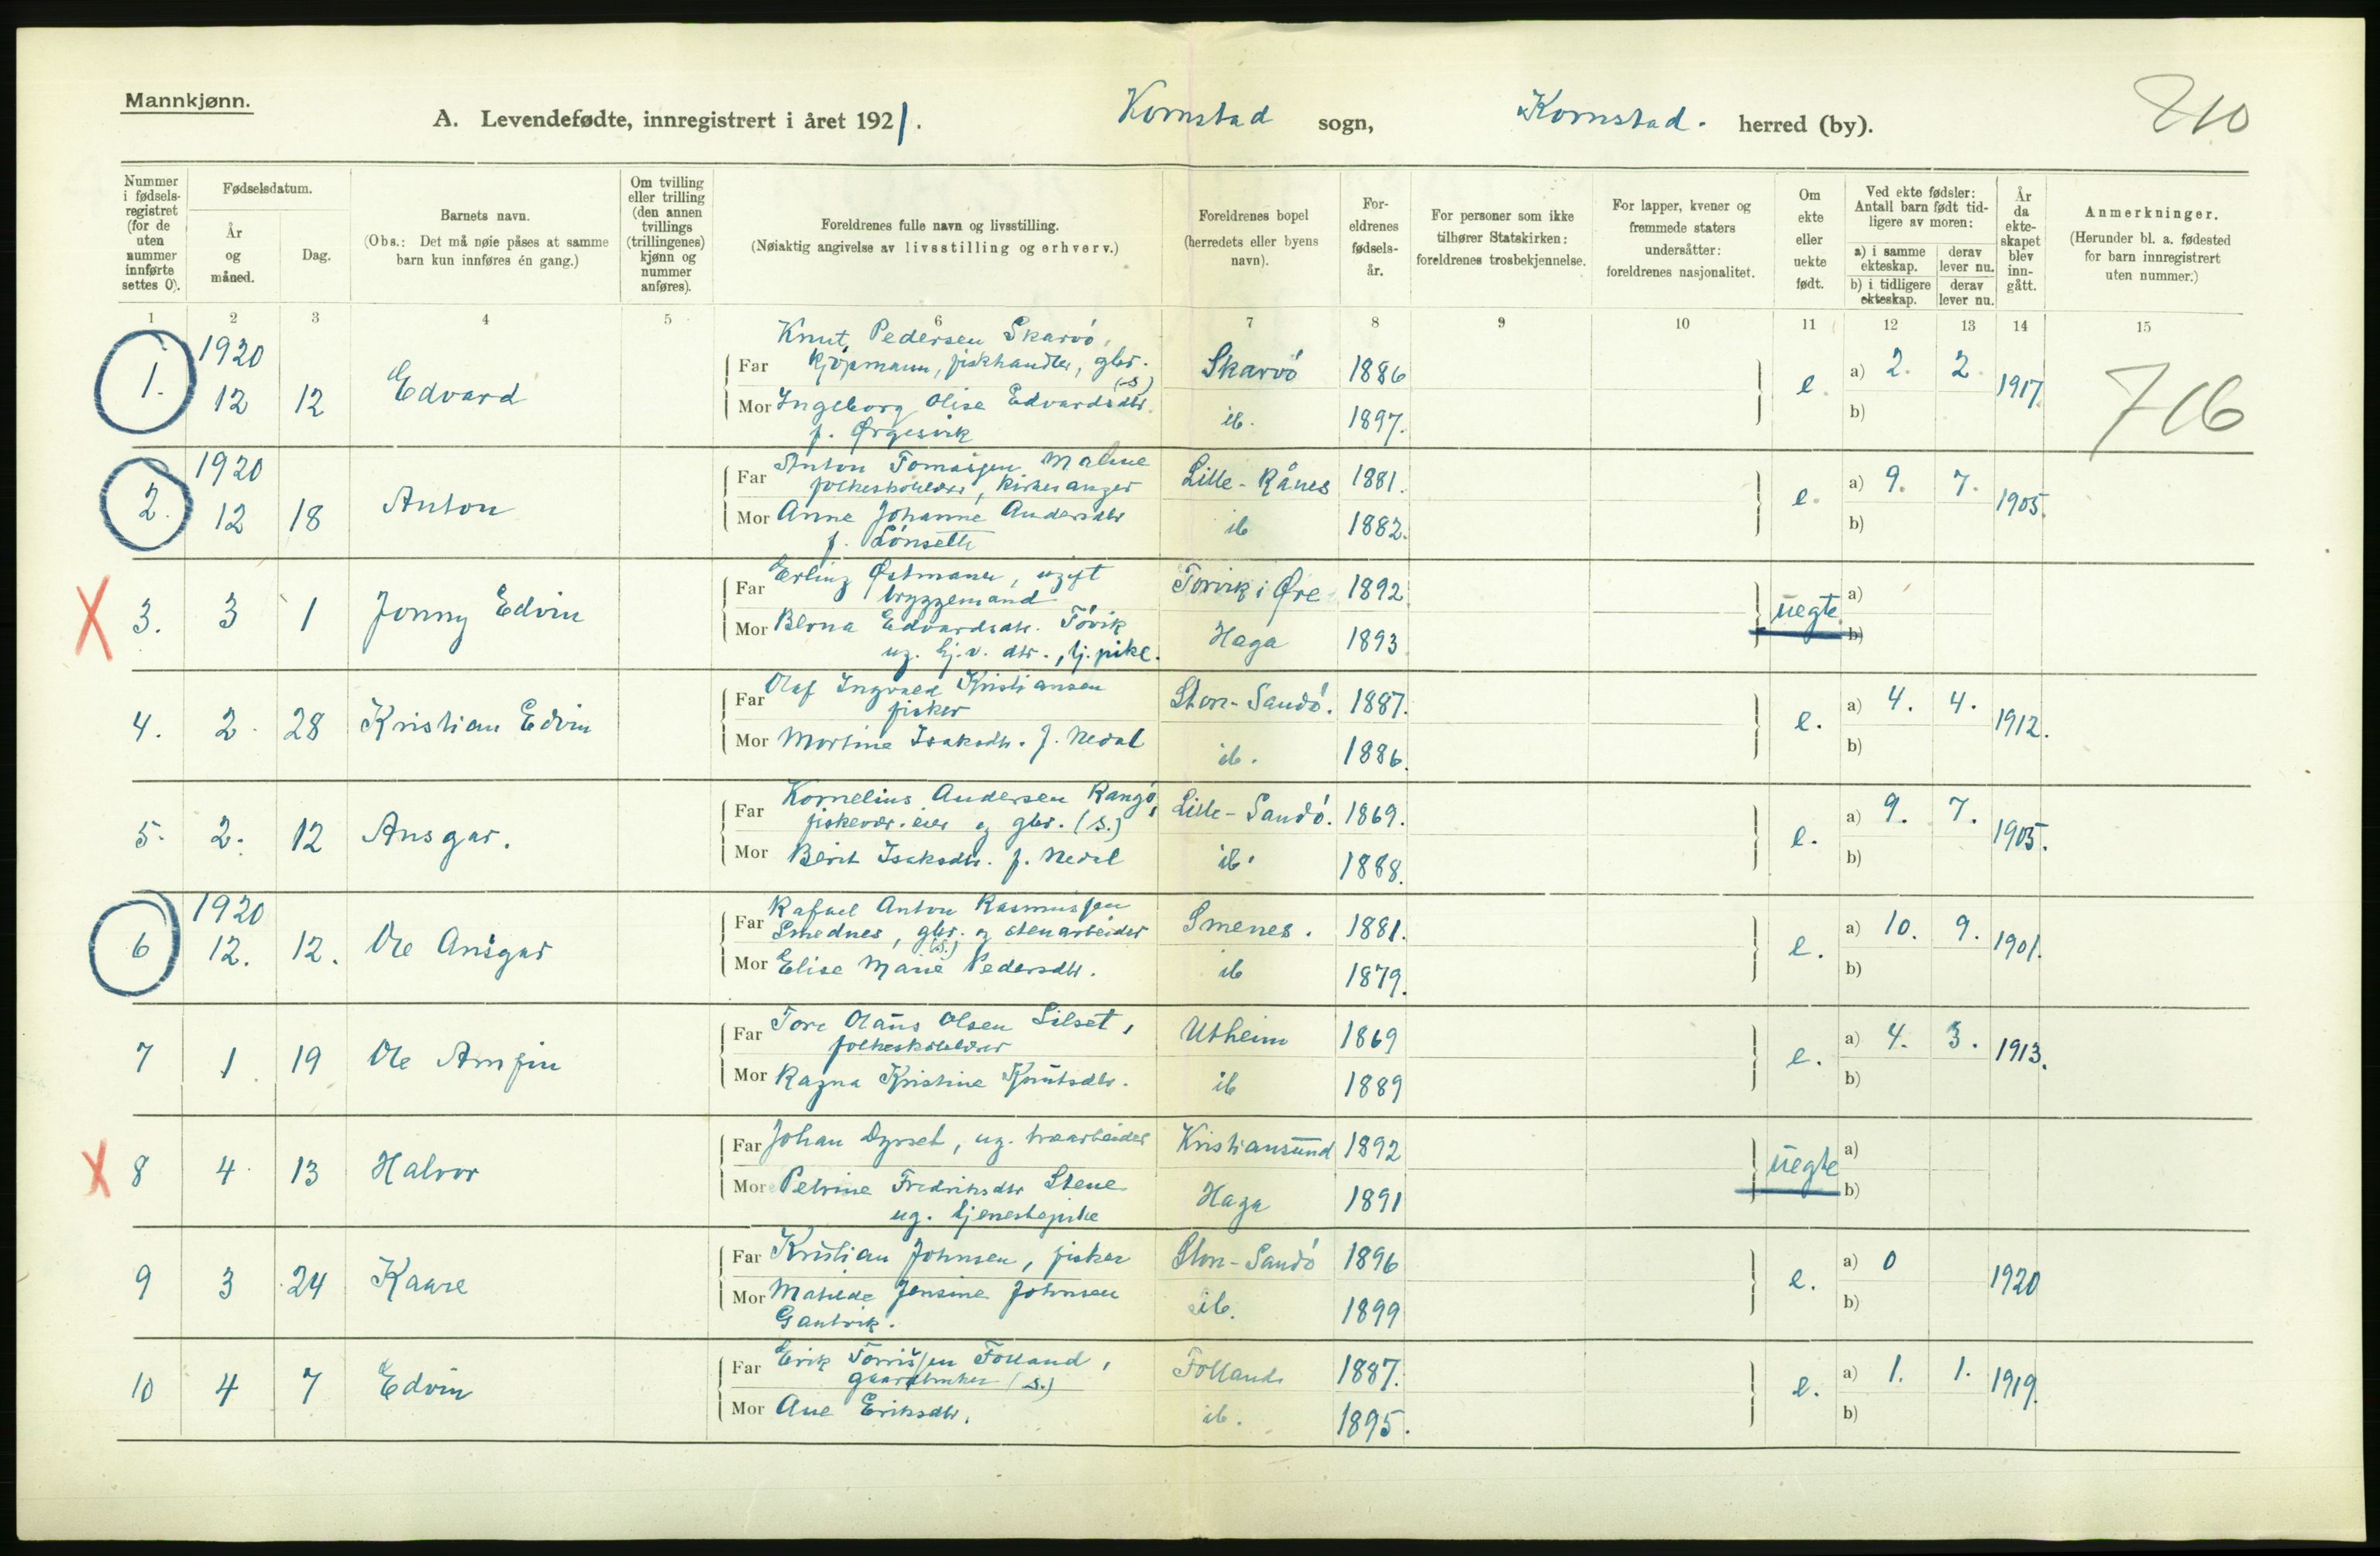 Mannkjønn.
A. Levendefødte, innregistrert i året 1921.
Kornstad sogn, Kornstad. herred (by).
710
Nummer i fødsels-registret (for de uten nummer innførte settes 0).
Fødselsdatum.
År og måned.
Dag.
Barnets navn.
(Obs.: Det må nøie påses at samme barn kun innføres én gang.)
Om tvilling eller trilling (den annen tvillings (trillingenes) kjønn og nummer anføres).
Foreldrenes fulle navn og livsstilling.
(Nøiaktig angivelse av livsstilling og erhverv.)
Foreldrenes bopel (herredets eller byens navn).
For-eldrenes fødsels-år.
For personer som ikke tilhører Statskirken: foreldrenes trosbekjennelse.
For lapper, kvener og fremmede staters undersåtter: foreldrenes nasjonalitet.
Om ekte eller uekte født.
Ved ekte fødsler: Antall barn født tid-ligere av moren:
a) i samme ekteskap. derav lever nu.
b) i tidligere ekteskap. derav lever nu.
År da ekte-skapet blev inn-gått.
Anmerkninger.
(Herunder bl. a. fødested for barn innregistrert uten nummer.)
1 2 3 4 5 6 7 8 9 10 11 12 13 14 15
1. 1920 12 12 Edvard
Knut Pedersen Skarvö,
Far Kjöpmann, fiskhandler, gbr. (S) Skarvö 1886 e. a) 2. 2. 1917
Mor Ingeborg Olise Edvardsdtr. ib. 1897. b)
f. Ørgesvik
716
2. 1920 12 18 Anton
Far Anton Tomassen Malme Lille-Rånes 1881. e. a) 9. 7. 1905.
folkeskolelærer, kirkesanger
Mor Anne Johanne Andersdtr ib 1882. b)
f. Lönseth
3. 3 1 Jonny Edvin
Far Erling Østmann, ugift Torvik i Øre 1892 uegte a)
bryggemand
Mor Berna Edvardsdtr. Törvik Haga 1893 b)
ug. hj.v. dtr., tj.pike.
4. 2. 28 Kristian Edvin
Far Olaf Ingvald Kristiansen Stor-Sandö. 1887. e. a) 4. 4. 1912.
fisker
Mor Martine Isaksdtr. f. Nedal ib. 1886. b)
5. 2. 12 Ansgar.
Far Kornelius Andersen Rangö, Lille-Sandö. 1869. e. a) 9. 7. 1905.
fiskevær.eier og gbr. (S.)
Mor Berit Isaksdtr. f. Nedal ib. 1888. b)
6 1920 12. 12. Ole Ansgar
Far Rafael Anton Rasmussen Smenes. 1881. e. a) 10. 9. 1901.
Smednes, gbr. og stenarbeider (S.)
Mor Elise Marie Pedersdtr. ib 1879. b)
7 1 19 Ole Arnfin
Far Tore Olaus Olsen Lilset, Utheim 1869 e. a) 4. 3. 1913.
folkeskolelærer
Mor Ragna Kristine Knutsdtr. ib 1889 b)
8 4 13 Halvor
Far Johan Dyrset, ug. træarbeider Kristiansund 1892 uegte a)
Mor Petrine Fredriksdtr Stene Haga 1891 b)
ug. tjenestepike
9 3 24 Kaare
Far Kristian Johnsen, fisker Stor-Sandö 1896 e. a) 0 1920
Mor Matilde Jensine Johnsen ib. 1899 b)
Gautvik.
10 4 7 Edvin
Far Erik Torrissen Folland, Folland 1887. e. a) 1. 1. 1919.
gaardbruker (S.)
Mor Ane Eriksdtr. ib. 1895. b)